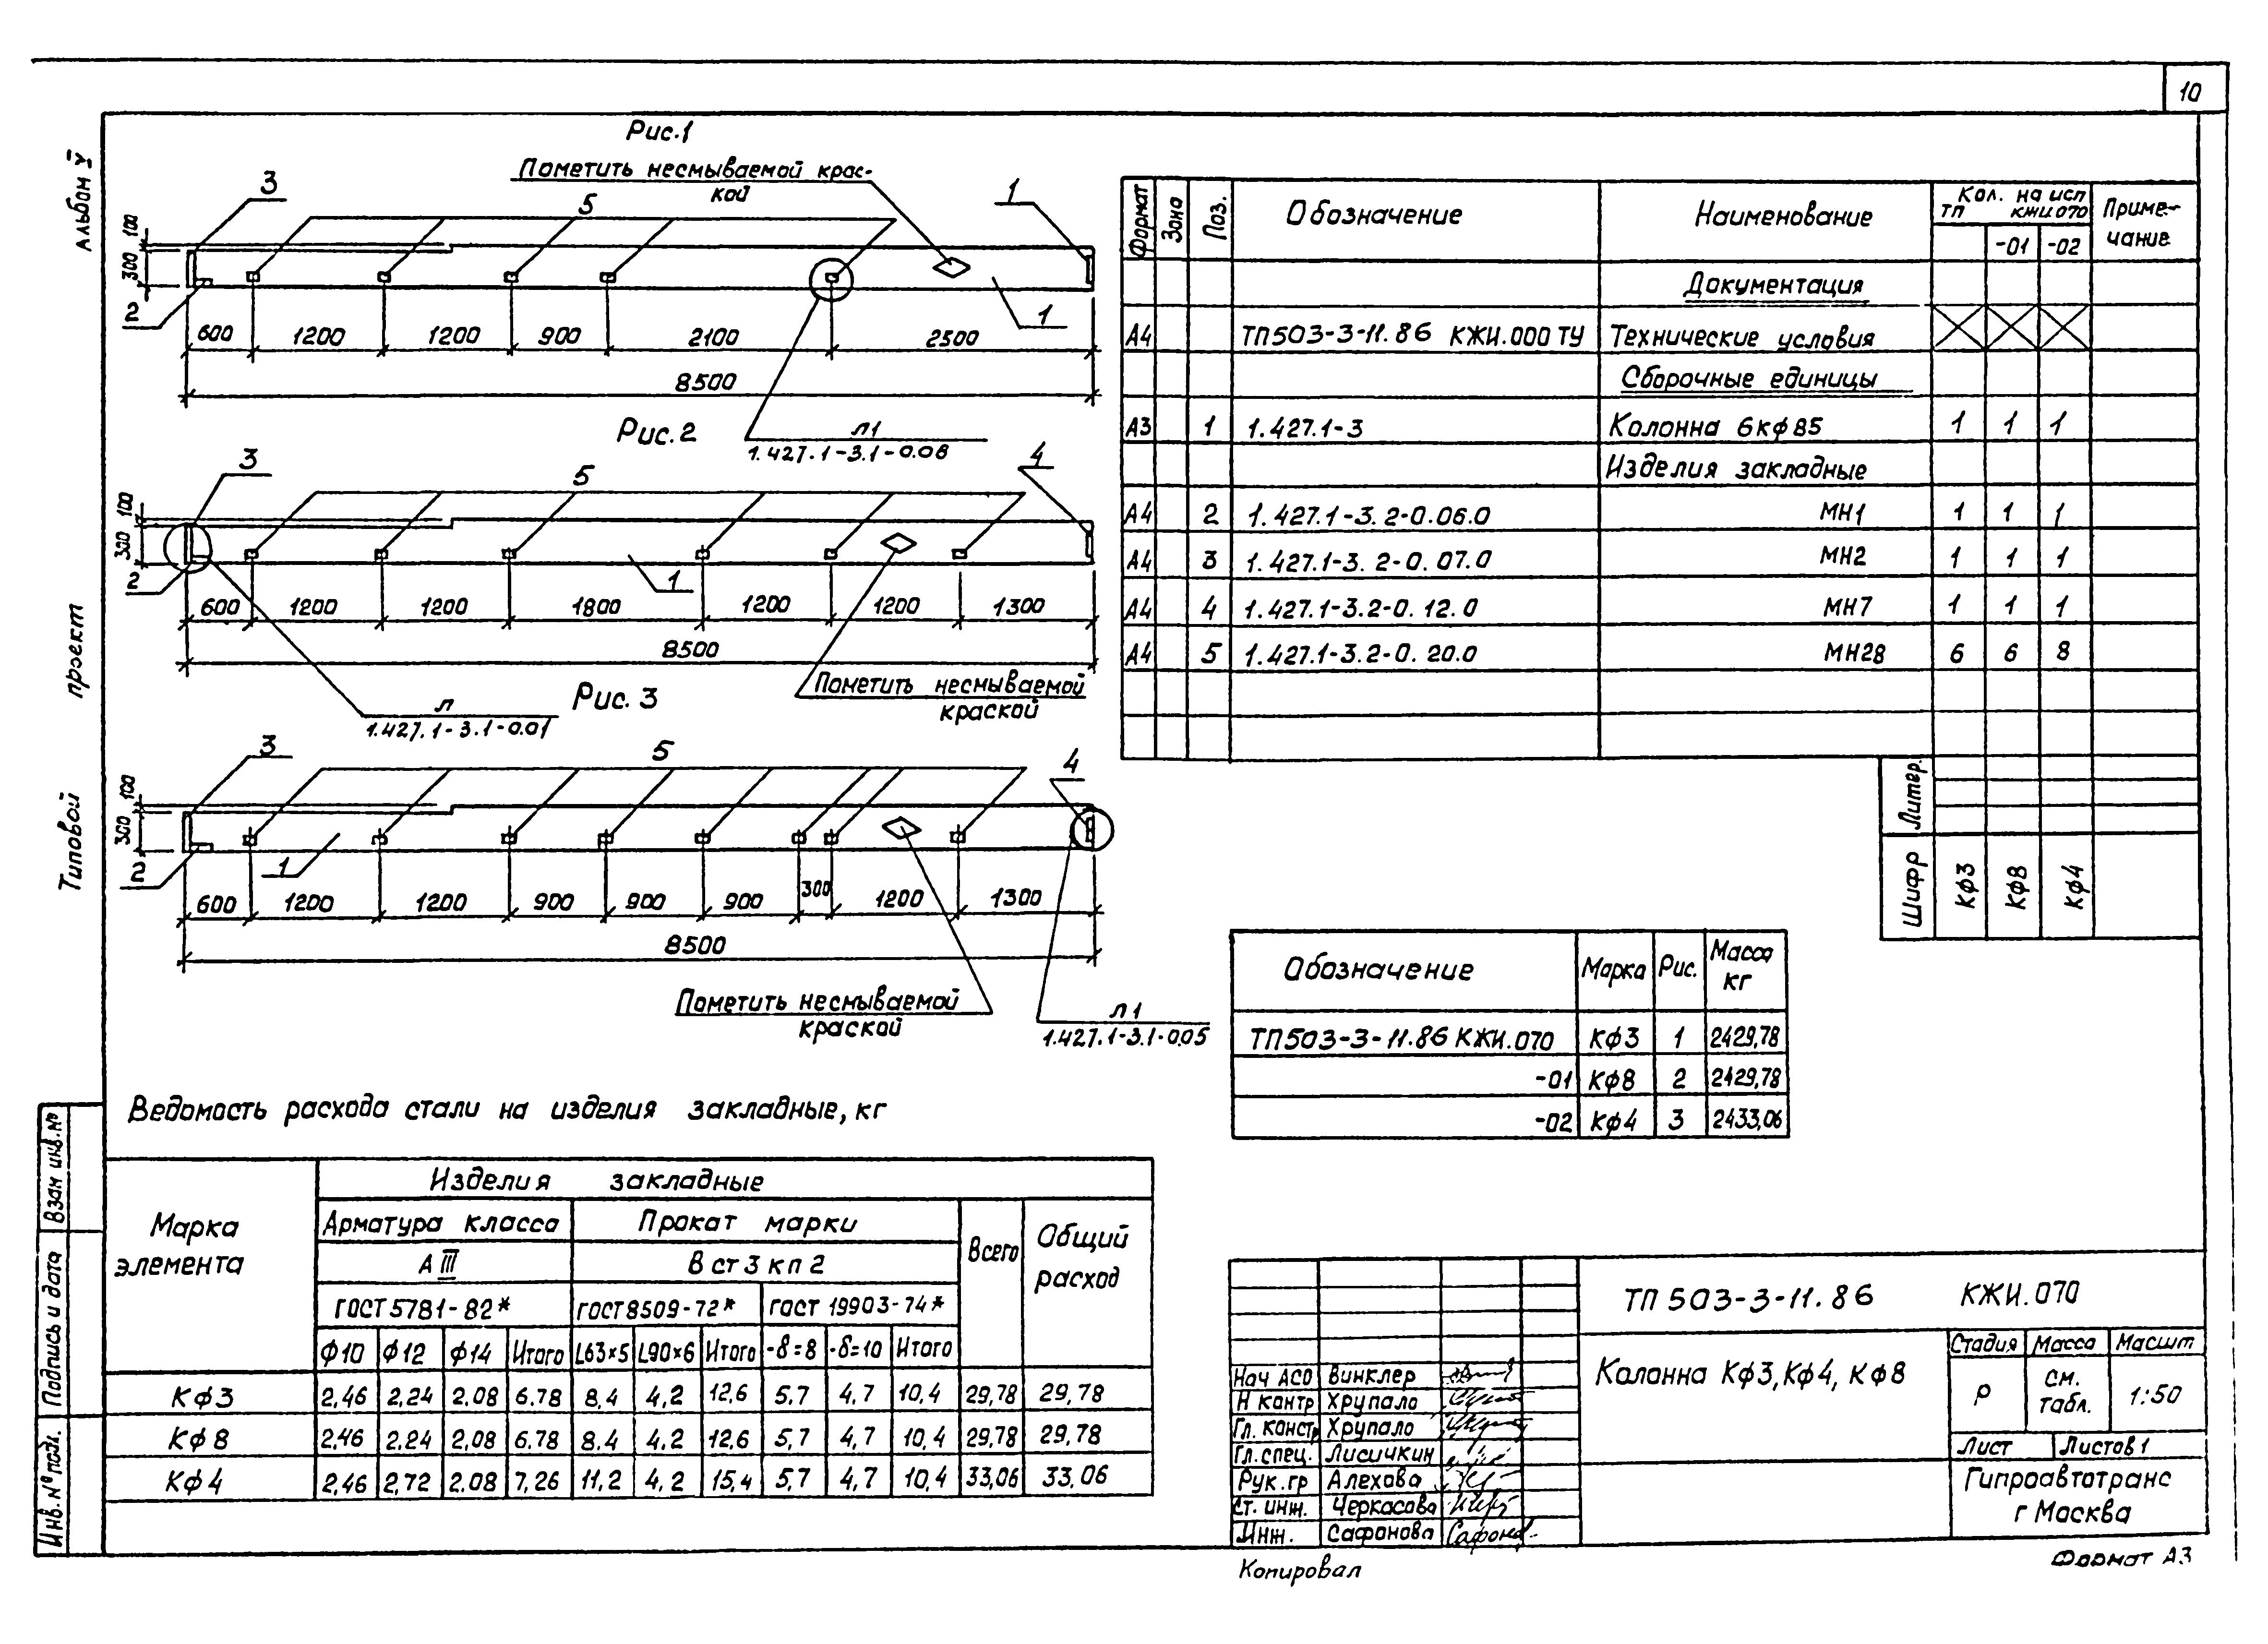 10
Альбом V
Типовой проект
Рис.1
Пометить несмываемой крас-
кой
3
5
1
100
300
2
1
600 1200 1200 900 2100 2500
8500
Л1
1.427.1-3.1-0.06
Рис.2
3
5
4
100
300
2
1
600 1200 1200 1800 1200 1200 1300
8500
Пометить несмываемой
краской
Л
1.427.1-3.1-0.01
Рис. 3
3
5
4
100
300
2
1
600 1200 1200 900 900 900 300 1200 1300
8500
Пометить несмываемой
краской
Л1
1.427.1-3.1-0.05
Формат Зона Поз. Обозначение Наименование Кол. на исп Приме-
ТП КЖИ 070 чание
-01 -02
Документация
А4 ТП503-3-11.86 КЖИ.000 ТУ Технические условия
Сборочные единицы
А3 1 1.427.1-3 Колонна 6кф85 1 1 1
Изделия закладные
А4 2 1.427.1-3.2-0.06.0 МН1 1 1 1
А4 3 1.427.1-3.2-0.07.0 МН2 1 1 1
А4 4 1.427.1-3.2-0.12.0 МН7 1 1 1
А4 5 1.427.1-3.2-0.20.0 МН28 6 6 8
Литер.
Шифр Кф3 Кф8 Кф4
Обозначение Марка Рис. Масса
кг
ТП503-3-11.86 КЖИ.070 Кф3 1 2429,78
-01 Кф8 2 2429,78
-02 Кф4 3 2433,06
Ведомость расхода стали на изделия закладные, кг
Марка
элемента
Изделия закладные
Арматура класса Прокат марки Всего Общий
расход
А III В ст 3 кп 2
ГОСТ 5781-82* ГОСТ 8509-72* ГОСТ 19903-74*
Ф10 Ф12 Ф14 Итого L63×5 L90×6 Итого -δ=8 -δ=10 Итого
Кф3 2,46 2,24 2,08 6.78 8,4 4,2 12,6 5,7 4,7 10,4 29,78 29,78
Кф8 2,46 2,24 2,08 6.78 8.4 4,2 12,6 5,7 4,7 10,4 29,78 29,78
Кф4 2,46 2,72 2.08 7,26 11,2 4,2 15,4 5,7 4,7 10,4 33,06 33,06
Взам инв. №
Подпись и дата
Инв. № подл.
ТП 503-3-11.86 КЖИ.070
Колонна Кф3, Кф4, Кф8
Стадия Масса Масшт
Р см.
табл. 1:50
Лист Листов 1
Гипроавтотранс
г Москва
Нач АСО Винклер
Н контр Хрупало
Гл. констр Хрупало
Гл. спец. Лисичкин
Рук. гр Алехова
Ст. инж. Черкасова
Инж. Сафонова
Копировал
Формат А3